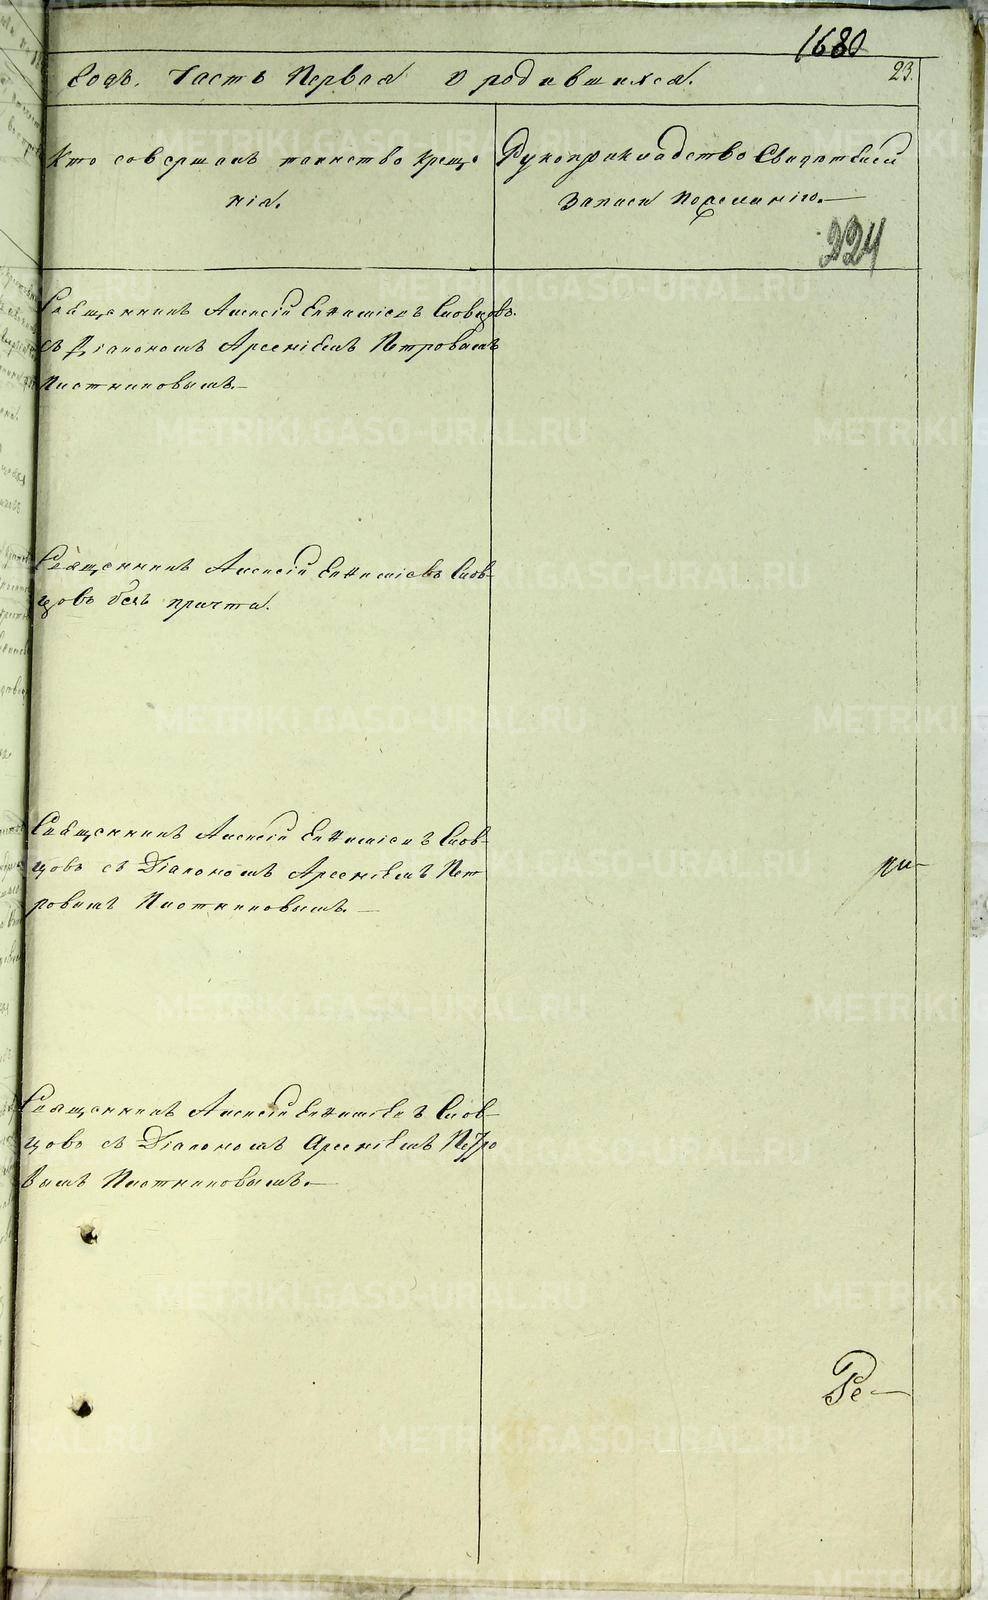 1680
Годъ. Часть Первая О родившихся. 23.
Кто совершалъ таинство креще
нія.
Рукоприкладство Свидѣтелей
записи по желанію.
224
Священникъ Алексій Евѳиміевъ Словцовъ.
съ Діакономъ Арсеніемъ Петровымъ
Плотниковымъ.
Священникъ Алексій Евѳиміевъ Слов-
цовъ безъ причта.
Священникъ Алексій Евѳиміевъ Слов-
цовъ съ Діакономъ Арсеніемъ Пет
ровымъ Плотниковымъ.
Священникъ Алексій Евѳиміевъ Слов-
цовъ съ Діакономъ Арсеніемъ Петро
вымъ Плотниковымъ.
Ре-
METRIKI.GASO-URAL.RU